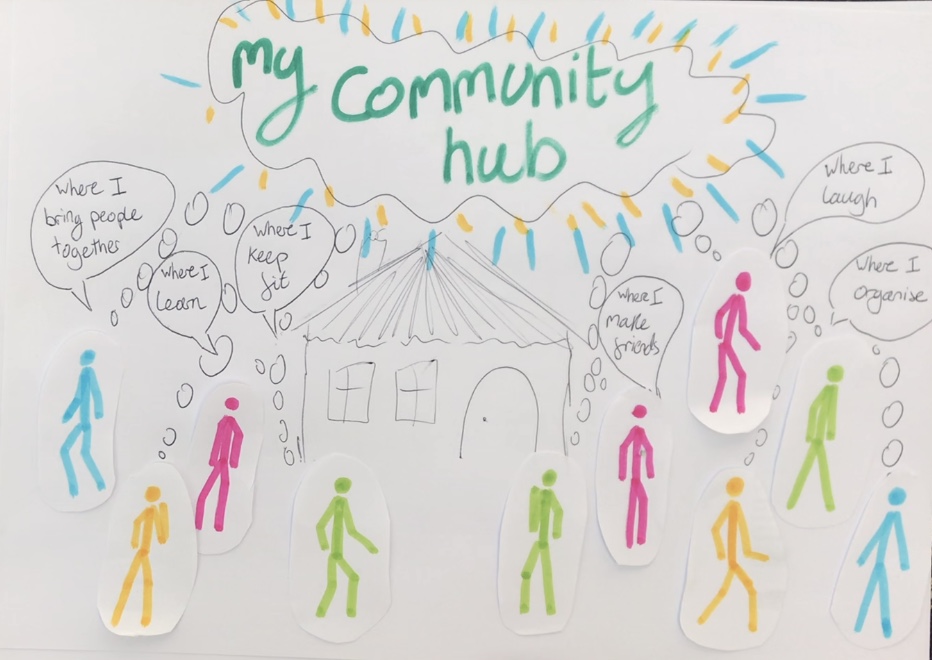 My Community
hub
where I
bring people
together
where I
learn
where I
keep
fit
where I
make
friends
where I
laugh
where I
organise